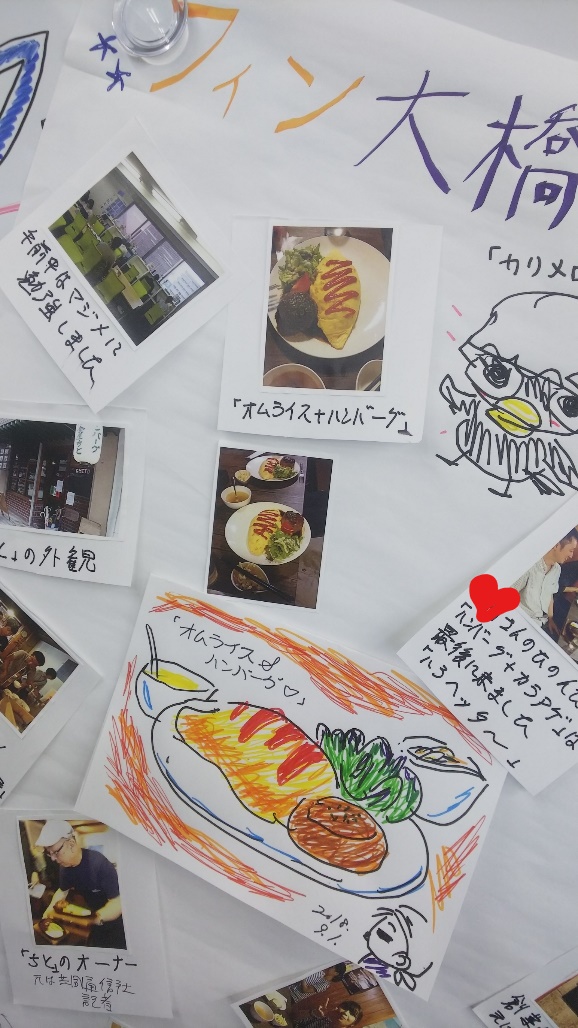 フィン大橋
「カリメロ
午前中はマジメに
勉強しました
「オムライス+ハンバーグ」
と」の外観
さんのたのんだ
「ハンバーグ+カラアゲ」は
最後に来ました
「ハラヘッタ〜」
「オムライス&
ハンバーグ♡」
2018.
9.1.
「さと」のオーナー
元は共同通信社
記者